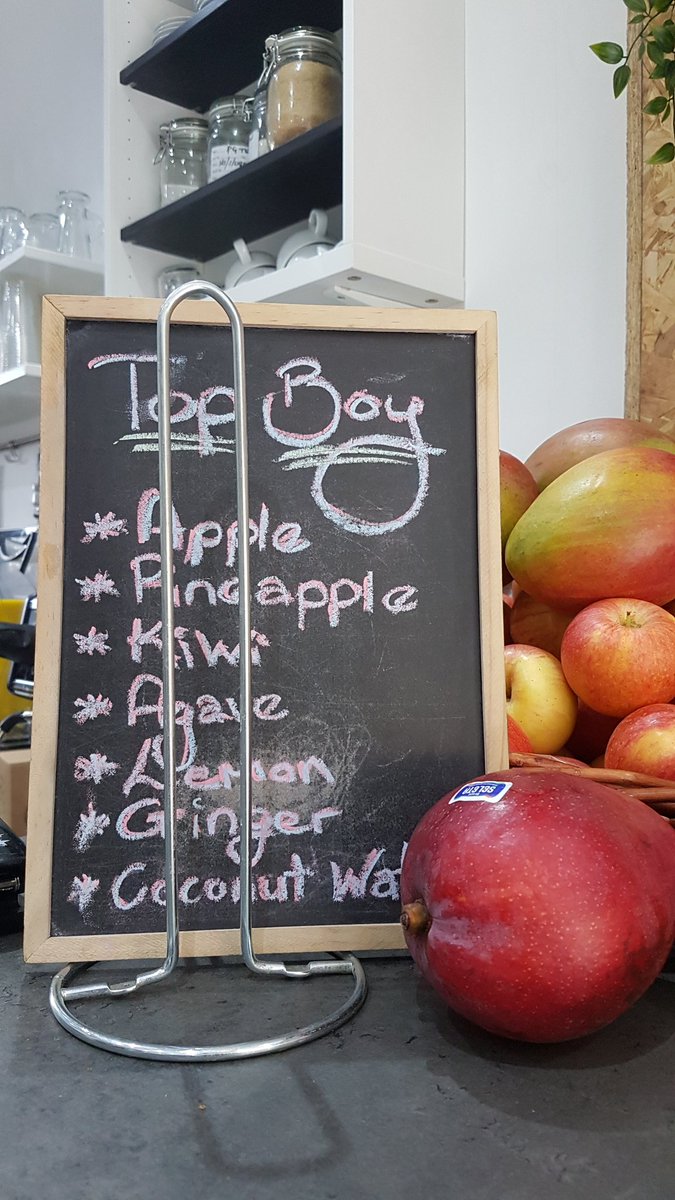 Top Boy
* Apple
* Pineapple
* Kiwi
* Agave
* Lemon
* Ginger
* Coconut Wat